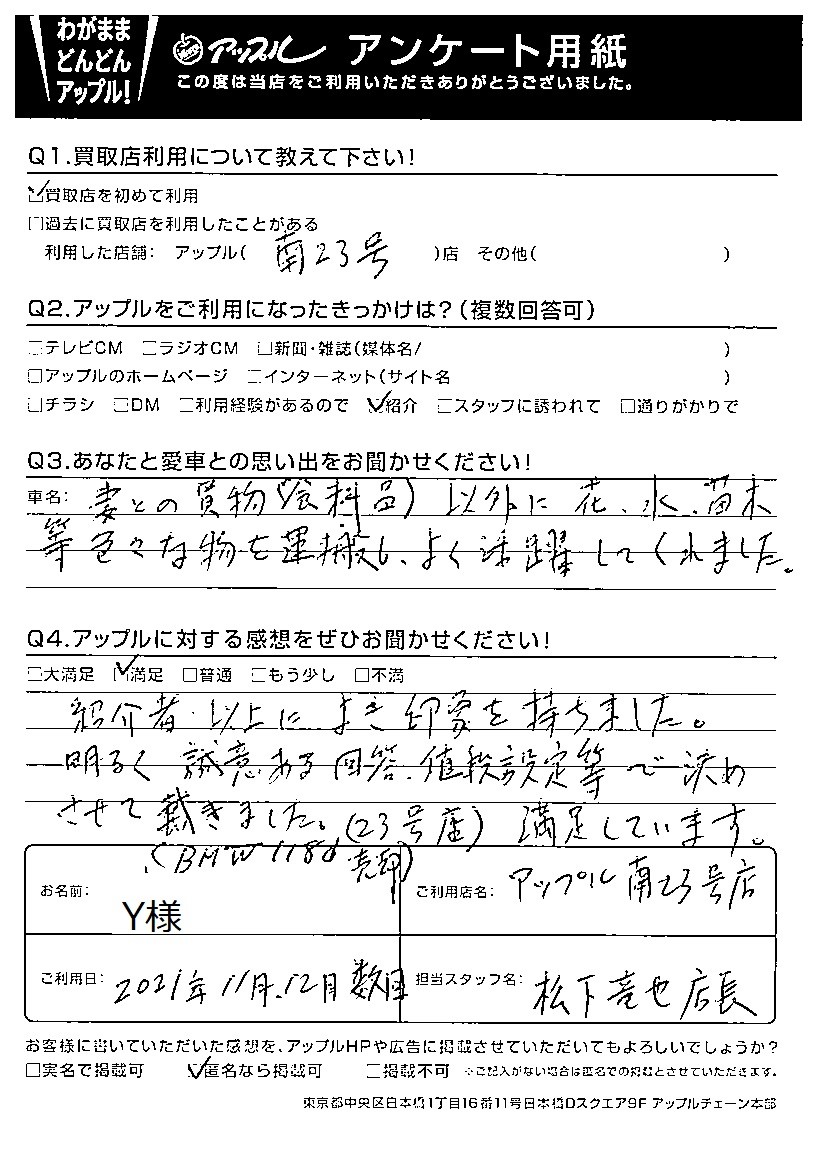 わがまま
どんどん
アップル!
アップル アンケート用紙
この度は当店をご利用いただきありがとうございました。
Q1.買取店利用について教えて下さい!
☑買取店を初めて利用
□過去に買取店を利用したことがある
利用した店舗: アップル( 南23号 )店 その他( )
Q2.アップルをご利用になったきっかけは?(複数回答可)
□テレビCM □ラジオCM □新聞・雑誌(媒体名/ )
□アップルのホームページ □インターネット(サイト名 )
□チラシ □DM □利用経験があるので ☑紹介 □スタッフに誘われて □通りがかりで
Q3.あなたと愛車との思い出をお聞かせください!
車名: 妻との買物(食料品)以外に花、水、苗木
等色々な物を運搬し、よく活躍してくれました。
Q4.アップルに対する感想をぜひお聞かせください!
□大満足 ☑満足 □普通 □もう少し □不満
紹介者以上によき印象を持ちました。
明るく誠意ある回答、値段設定等で決め
させて戴きました。(23号店)満足しています。
(BMW118d売却)
お名前: Y様
ご利用店名: アップル南23号店
ご利用日: 2021年11月、12月数日
担当スタッフ名: 松下竜也店長
お客様に書いていただいた感想を、アップルHPや広告に掲載させていただいてもよろしいでしょうか?
□実名で掲載可 ☑匿名なら掲載可 □掲載不可 ※ご記入がない場合は匿名での掲載とさせていただきます。
東京都中央区日本橋1丁目16番11号日本橋Dスクエア9F アップルチェーン本部